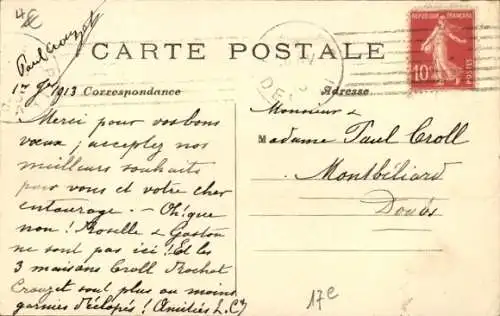 4€
Paul Crouzet
CARTE POSTALE
RÉPUBLIQUE FRANÇAISE
10 c
POSTES
1er Jer 1913 Correspondance
Adresse
Merci pour vos bons
vœux ; acceptez nos
meilleurs souhaits
pour vous et votre cher
entourage. — Oh! que
non ! Roselle & Gaston
ne sont pas ici ! Et les
3 maisons Croll Rochat
Crouzet sont plus ou moins
garnies d'éclopés ! Amitiés L. C
Monsieur &
Madame Paul Croll
Montbéliard
Doubs
17e